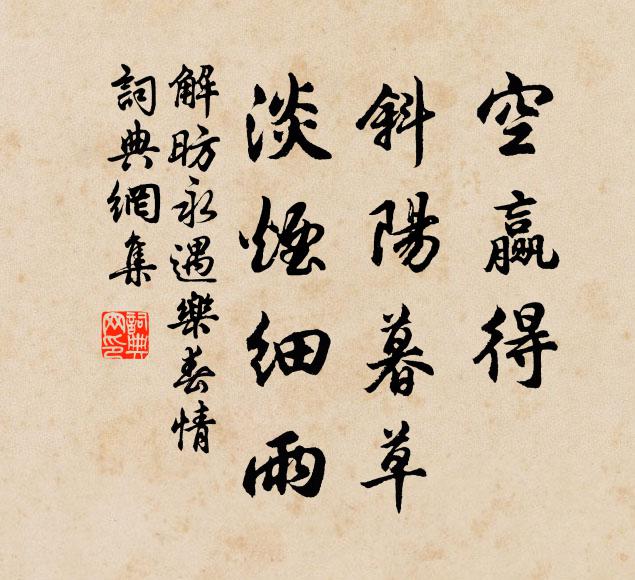 空贏得
斜陽暮草
淡煙細雨
解昉永遇樂春情
詞典網集
詞典網印